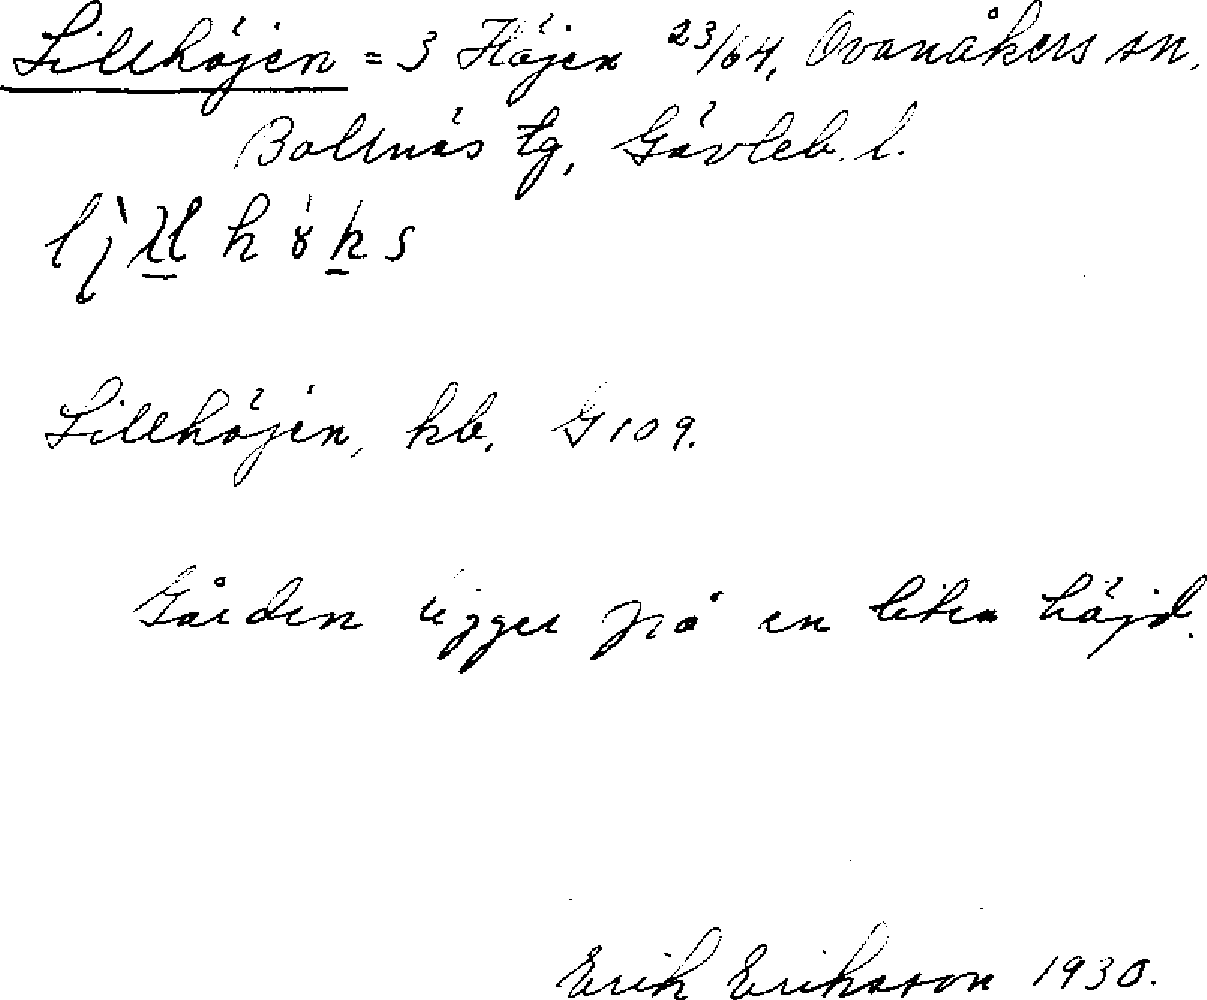 Lillhöjen = 3 Höjen 23/64, Ovanåkers sn,
Bollnäs tg, Gävleb. l.
Lillhöjen, kb. G 109.
Gården ligger på en liten höjd.
Erik Eriksson 1930.